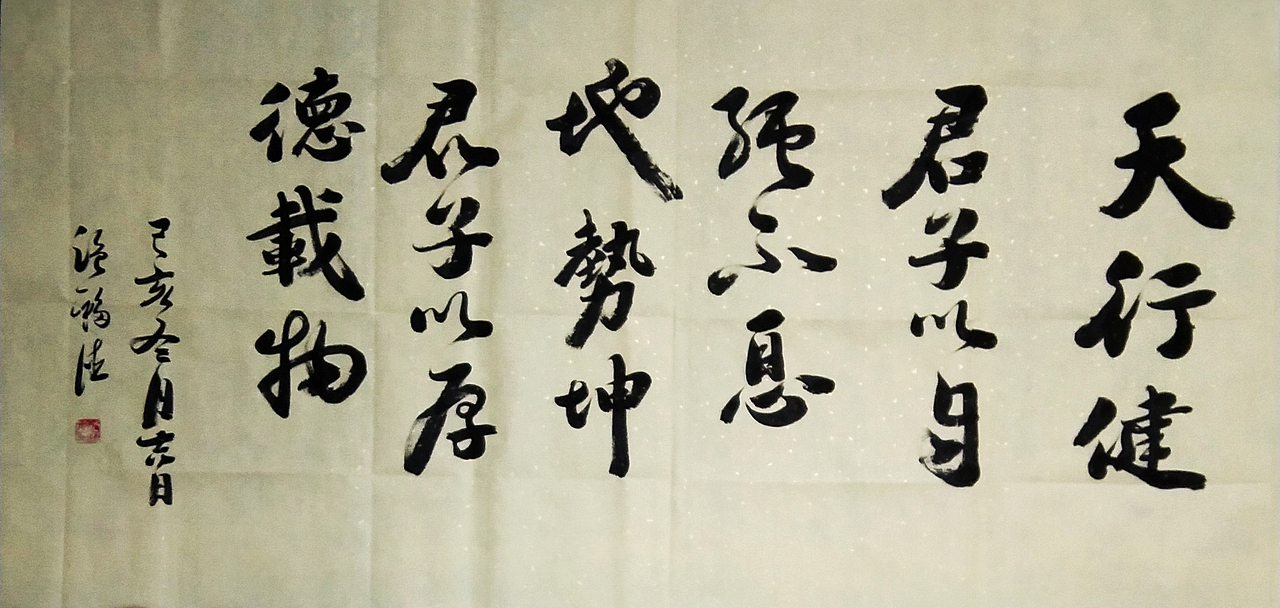 天行健
君子以自
强不息
地勢坤
君子以厚
德載物
己亥冬月六日